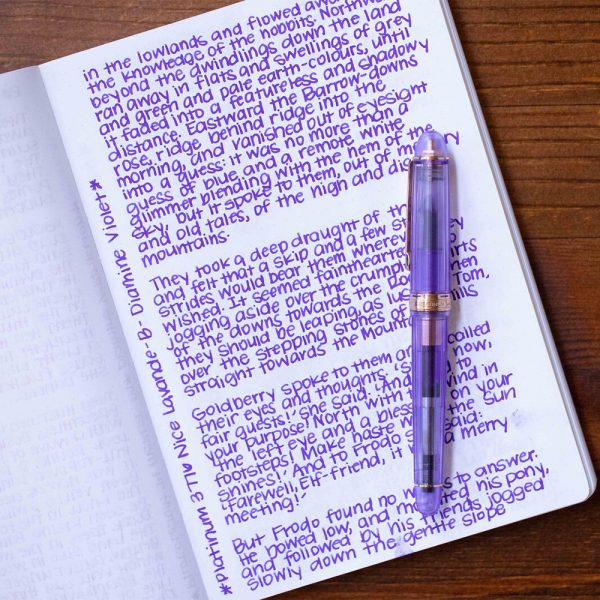 in the lowlands and flowed
the knowledge of the hobbits. Northward
beyond the dwindlings down the land
ran away in flats and swellings of grey
and green and pale earth-colours, until
it faded into a featureless and shadowy
distance. Eastward the Barrow-downs
rose, ridge behind ridge into the
morning, and vanished out of eyesight
into a guess: it was no more than a
guess of blue and a remote white
glimmer blending with the hem of the
sky, but it spoke to them, out of
and old tales, of the high and
mountains.
They took a deep draught of the
and felt that a skip and a few
strides would bear them wherever
wished. It seemed fainthearted
jogging aside over the crumpled
of the downs towards the
they should be leaping, as Tom,
over the stepping stones of
straight towards the Mountains
Goldberry spoke to them called
their eyes and thoughts. now,
fair guests!' she said. 'And to
your purpose! North with wind in
the left eye and a blessing on your
footsteps! Make haste the Sun
shines!' And to Frodo said:
'Farewell, Elf-friend, it a merry
meeting!'
But Frodo found no to answer.
He bowed low, and mounted his pony,
and followed by his friends jogged
slowly down the gentle slope
*Platinum 3776 Nice Lavander B- Diamine Violet*